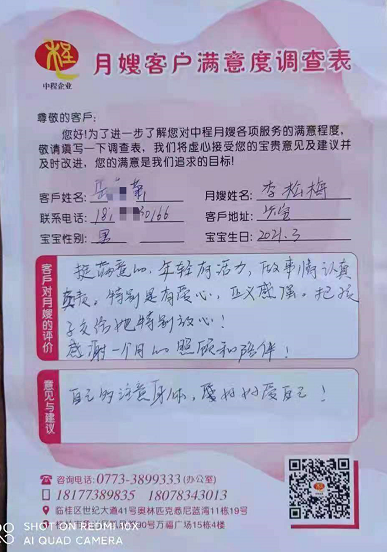 程
中程企业
月嫂客户满意度调查表
尊敬的客户：
您好！为了进一步了解您对中程月嫂各项服务的满意程度，
敬请填写一下调查表，我们将虚心接受您的宝贵意见及建议并
及时改进，您的满意是我们追求的目标！
客户姓名： 月嫂姓名：李松梅
联系电话：18 0166 客户地址：
宝宝性别：男 宝宝生日：2021.3
客户对月嫂的评价
挺满意的，年轻有活力，做事情认真
负责。特别是有爱心，正义感强。把孩
子交给她特别放心！
感谢一个月的照顾和陪伴！
意见与建议
自己的注意身体，要好好爱自己！
咨询电话：0773-3899333（办公室）
18177389835 18078343013
临桂区世纪大道41号奥林匹克悉尼蓝湾11栋19号
90号万福广场15栋4楼
SHOT ON REDMI 10X
AI QUAD CAMERA